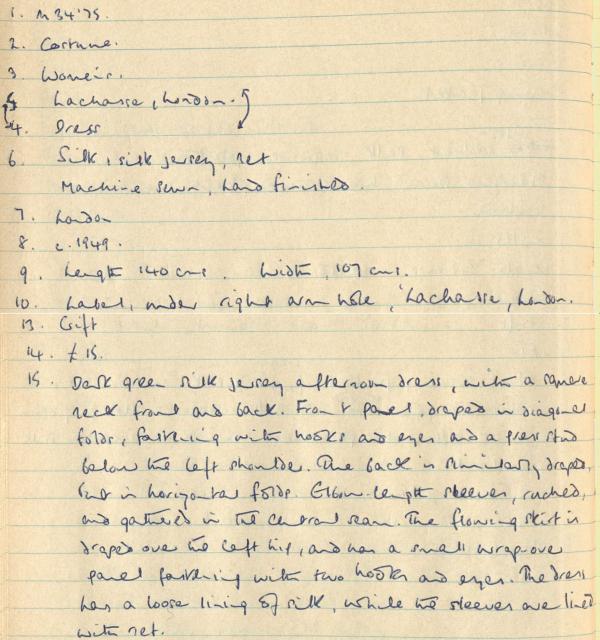 1. M 34'75.
2. Costume.
3. Women's.
5. Lachasse, London.
4. Dress
6. Silk, silk jersey, net
Machine sewn, hand finished.
7. London
8. c. 1949.
9. Length 140 cms. Width, 107 cms.
10. Label, under right arm hole, 'Lachasse, London.
13. Gift
14. £15.
15. Dark green silk jersey afternoon dress, with a square
neck front and back. Front panel, draped in diagonal
folds, fastening with hooks and eyes and a press stud
below the left shoulder. The back is similarly draped,
but in horizontal folds. Elbow-length sleeves, ruched,
and gathered in the central seam. The flowing skirt is
draped over the left hip, and has a small wrap-over
panel fastening with two hooks and eyes. The dress
has a loose lining of silk, while the sleeves are lined
with net.